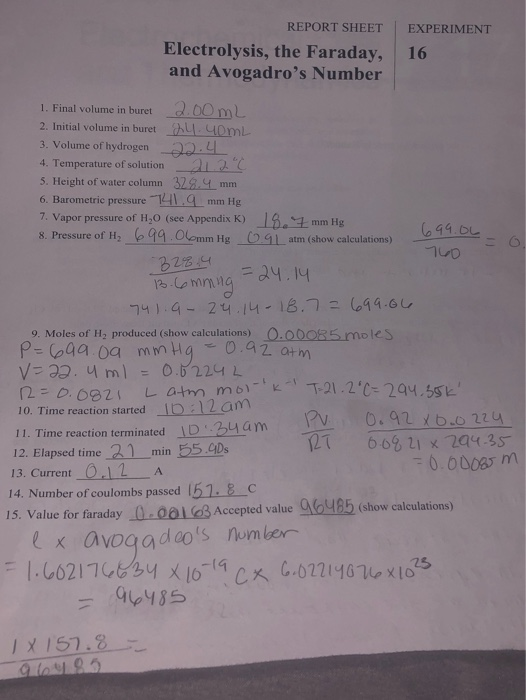 REPORT SHEET EXPERIMENT
Electrolysis, the Faraday, 16
and Avogadro's Number
1. Final volume in buret 2.00mL
2. Initial volume in buret 24.40mL
3. Volume of hydrogen 22.4
4. Temperature of solution 21.2°C
5. Height of water column 328.4 mm
6. Barometric pressure 741.9 mm Hg
7. Vapor pressure of H₂O (see Appendix K) 18.7 mm Hg
8. Pressure of H₂ 699.06 mm Hg 0.91 atm (show calculations)
699.06 / 760 = 0.
328.4 / 13.6mmHg = 24.14
741.9 - 24.14 - 18.7 = 699.06
9. Moles of H₂ produced (show calculations) 0.00085 moles
P = 699.09 mmHg = 0.92 atm
V = 22.4 ml = 0.0224 L
R = 0.0821 L atm mol⁻¹ K⁻¹ T=21.2°C = 294.35K
10. Time reaction started 10:12am
PV / RT 0.92 x 0.0224 / 0.0821 x 294.35
11. Time reaction terminated 10:34am
12. Elapsed time 21 min 55.90s
= 0.00085 M
13. Current 0.12 A
14. Number of coulombs passed 157.8 C
15. Value for faraday 0.00163 Accepted value 96485 (show calculations)
e x avogadoo's number
= 1.602176634 x 10⁻¹⁹ C x 6.02214076 x 10²³
= 96485
1 x 157.8 / 96485 =